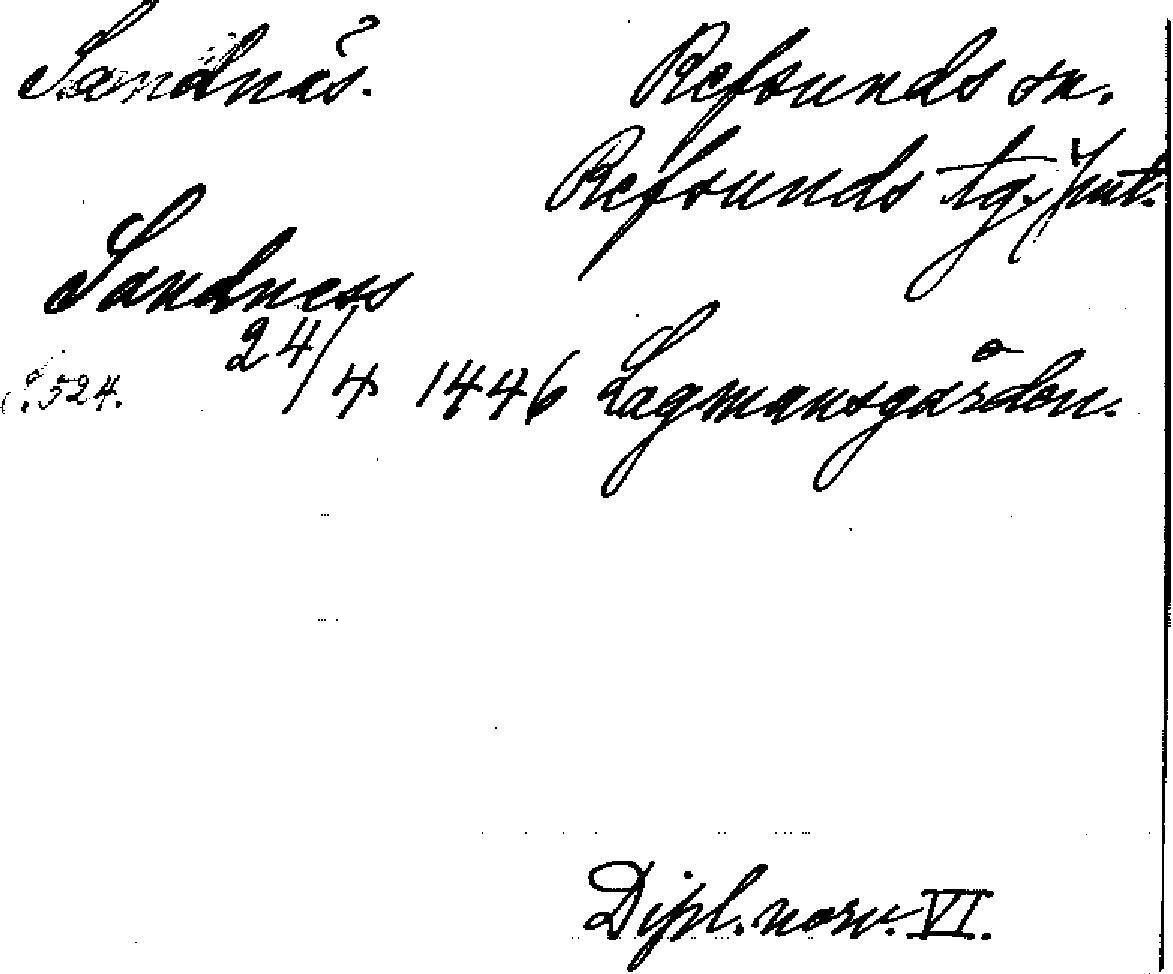 Sandnäs. Refsunds sn.
Refsunds tg. Jmt.
Sandness
S. 524. 24/4 1446 Lagmansgården.
Dipl. norv. VI.